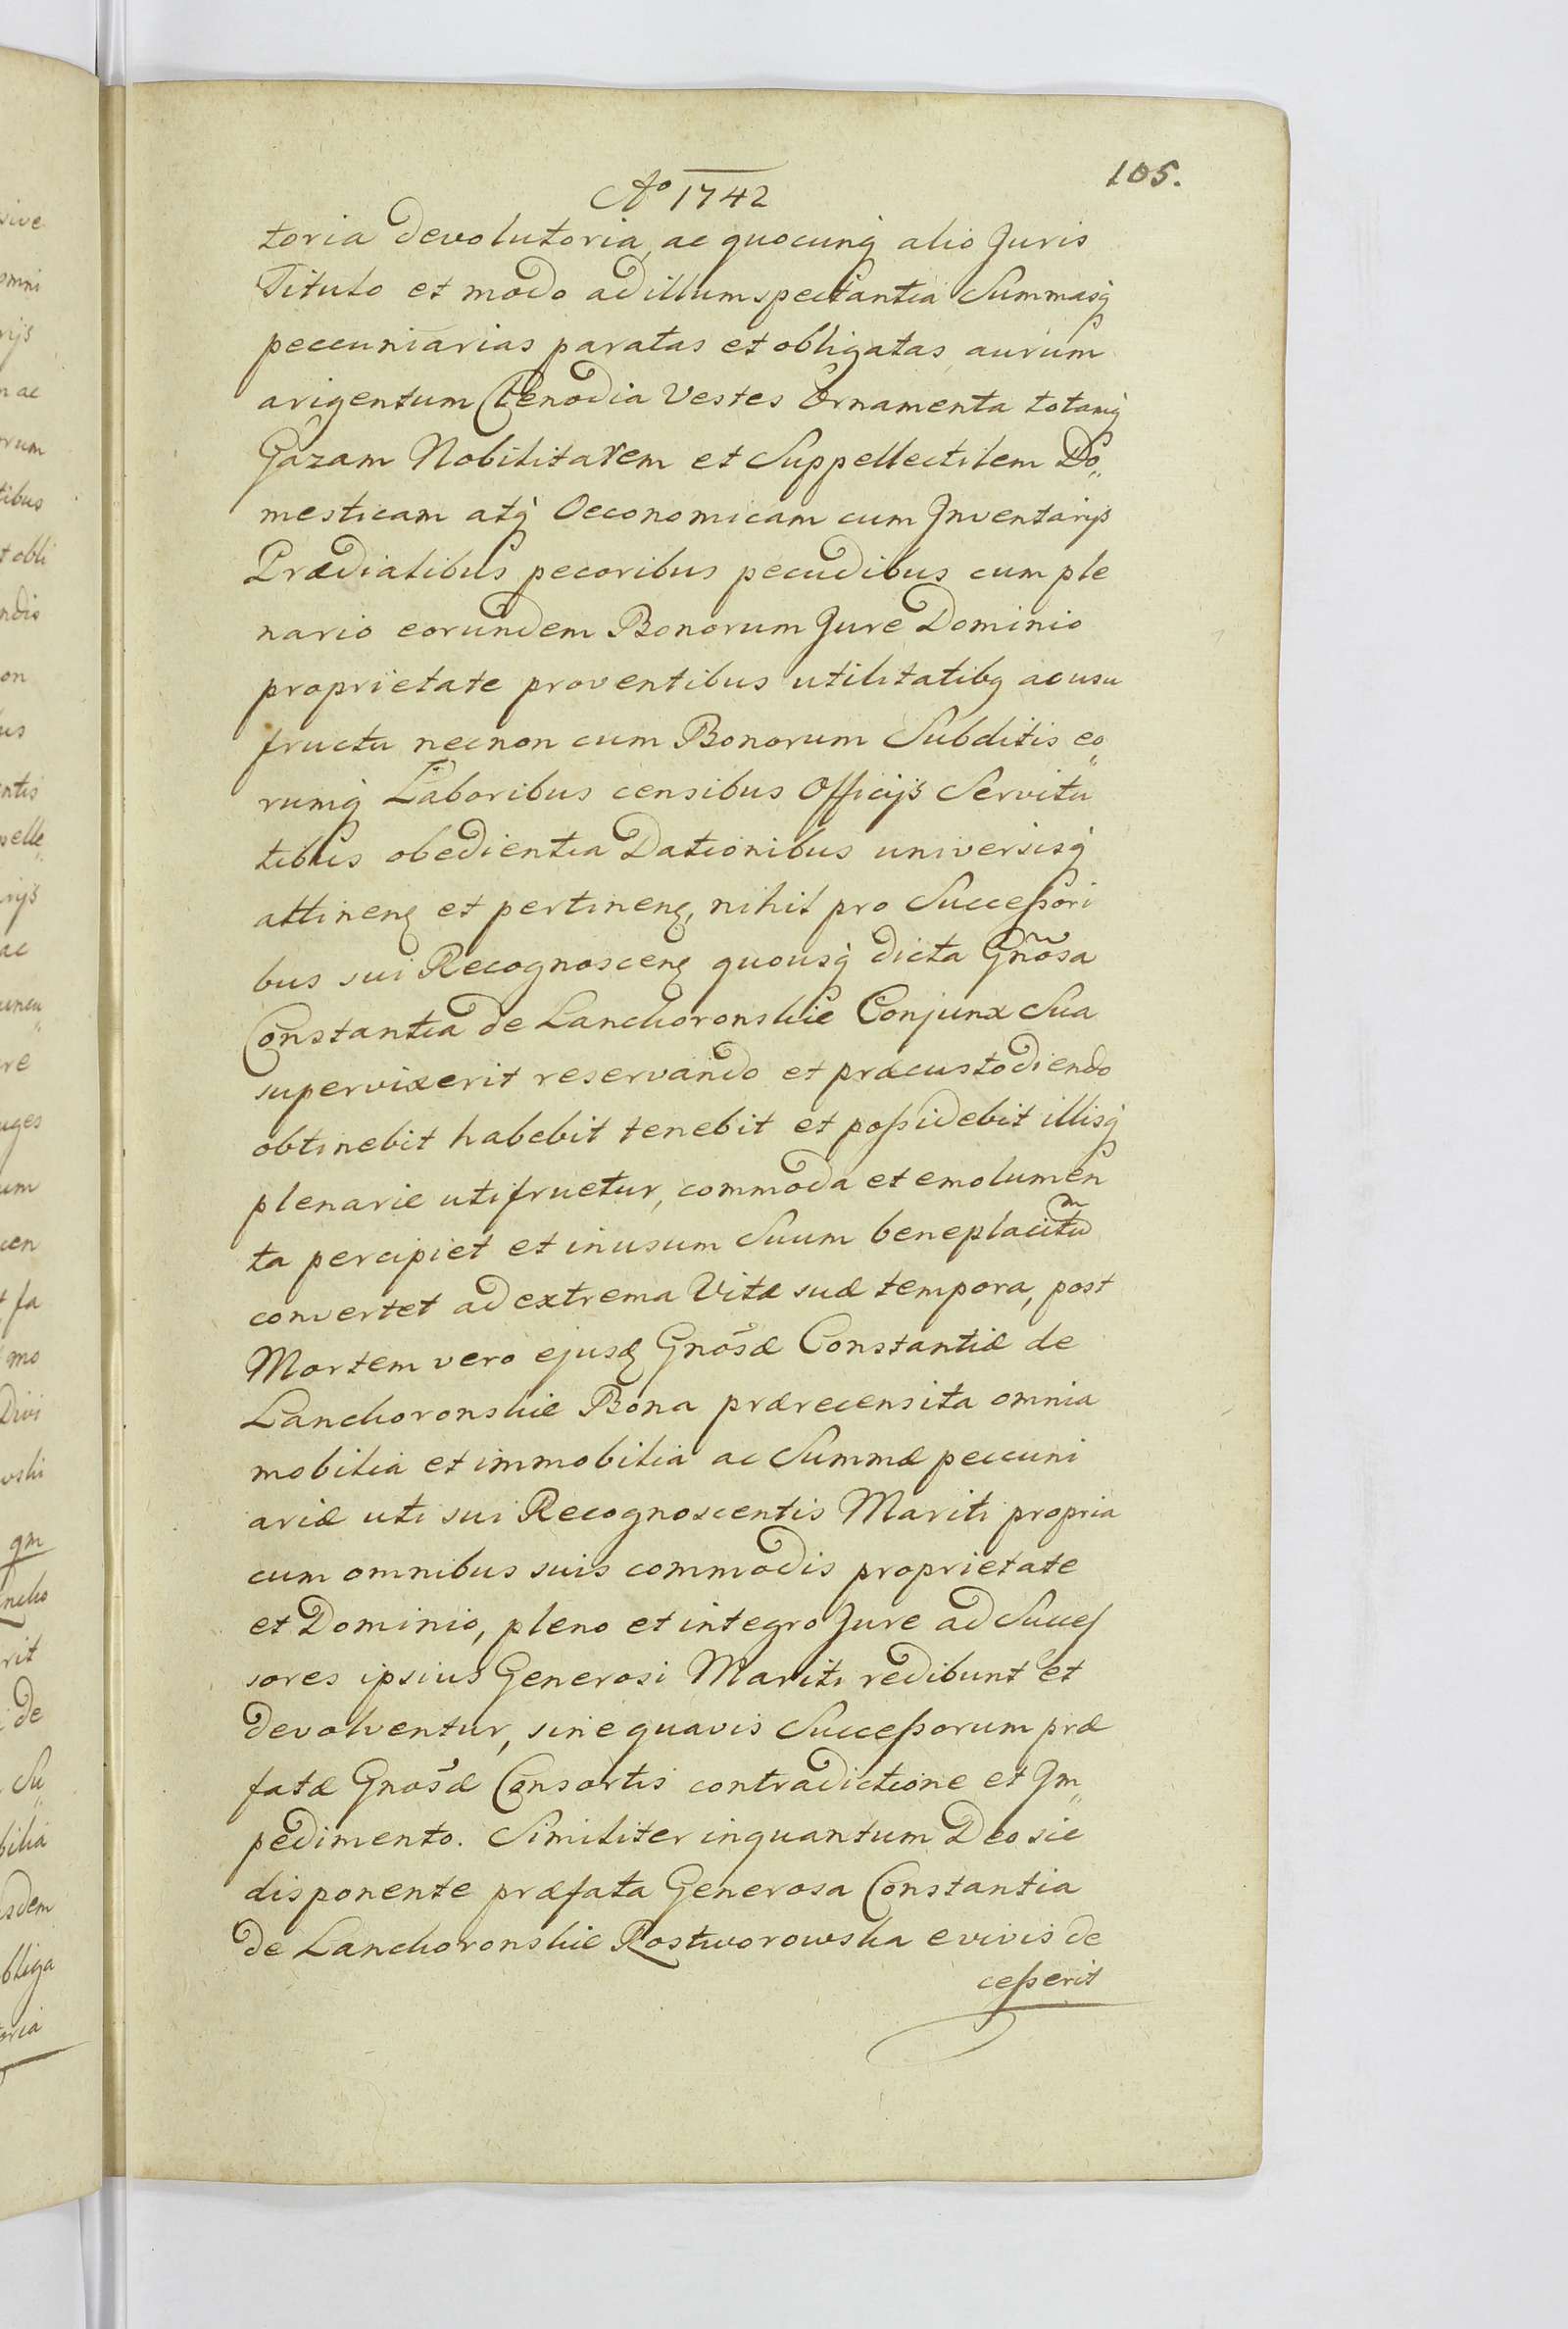 105.
Aº 1742
toria devolutoria, ac quocunq alio Juris
Titulo et modo ad illum spectantia Summasq
peccuniarias paratas et obligatas, aurum
arigentum Clenodia Vestes Ornamenta totamq
Gazam Nobilitarem et Suppellectilem Do„
mesticam atq Oeconomicam cum Inventarijs
Prædialibus pecoribus pecudibus cum ple
nario eorundem Bonorum Jure Dominio
proprietate proventibus utilitatibq ac usu
fructu necnon cum Bonorum Subditis eo„
rumq Laboribus censibus Officijs Servitu
tibus obedientia Dationibus universisq
attinenꝫ et pertinenꝫ, nihil pro Succeßori
bus sui Recognoscenꝫ quousq dicta Gnõsa
Constantia de Lanckoronskie Conjunx Sua
supervixerit reservando et præcustodiendo
obtinebit habebit tenebit et poßidebit illisq
plenarie utifruetur, commoda et emolumen
ta percipiet et in usum Suum beneplacitũ
convertet ad extrema Vitæ suæ tempora, post
Mortem vero ejusꝫ Gnõsæ Constantiæ de
Lanckoronskie Bona prærecensita omnia
mobilia et immobilia ac Summæ peccuni
ariæ uti sui Recognoscentis Mariti propria
cum omnibus suis commodis proprietate
et Dominio, pleno et integro Jure ad Succeſ
sores ipsius Generosi Mariti redibunt et
devolventur, sine quavis Succeßorum præ
fatæ Gnõsæ Consortis contradictione et Im„
pedimento. Similiter inquantum Deo sic
disponente præfata Generosa Constantia
de Lanckoronskie Rostworowska e vivis de
ceßerit